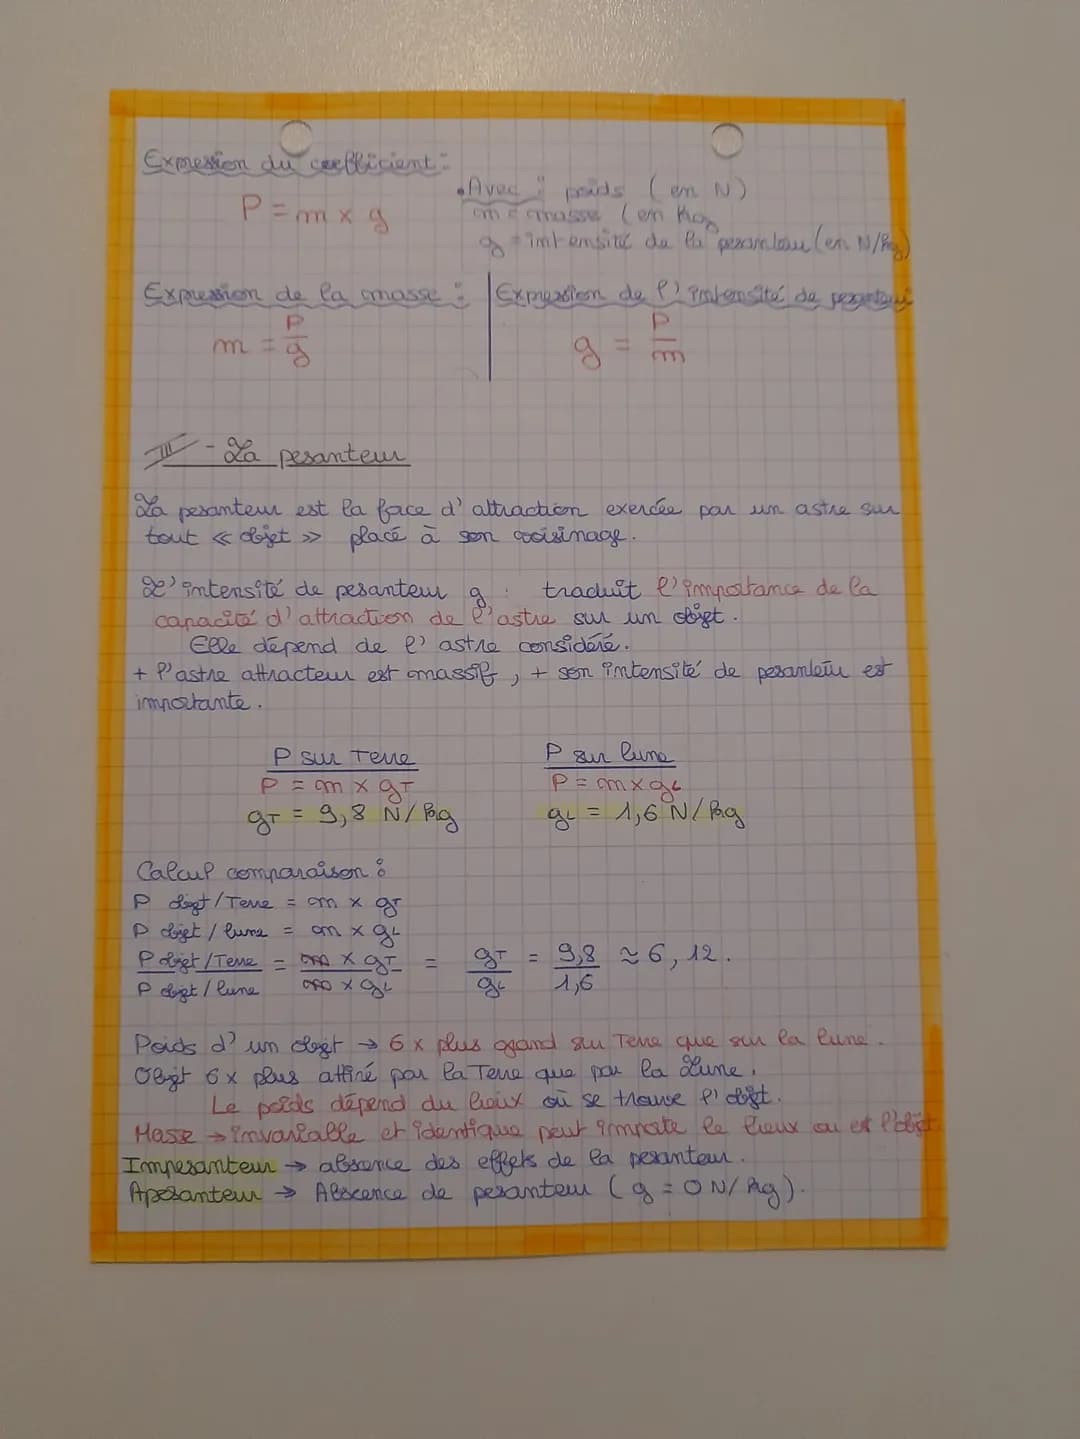 Expression du coefficient :
P = m x g
• Avec : poids (en N)
m = masse (en kg
g = intensité de la pesanteur (en N/kg)
Expression de la masse :
m = P/g
Expression de l'intensité de pesanteur
g = P/m
III - La pesanteur
La pesanteur est la force d'attraction exercée par un astre sur
tout « objet » placé à son voisinage.
L'intensité de pesanteur g : traduit l'importance de la
capacité d'attraction de l'astre sur un objet.
Elle dépend de l'astre considéré.
+ l'astre attracteur est massif, + son intensité de pesanteur est
importante.
P sur Terre
P = m x gT
gT = 9,8 N/kg
P sur lune
P = m x gL
gL = 1,6 N/kg
Calcul comparaison :
P objet/Terre = m x gT
P objet/lune = m x gL
P objet/Terre = m x gT = gT = 9,8 ≈ 6,12.
P objet/lune m x gL gL 1,6
Poids d'un objet → 6 x plus grand sur Terre que sur la lune.
Objet 6 x plus attiré par la Terre que par la Lune.
Le poids dépend du lieux où se trouve l'objet.
Masse → invariable et identique peut importe le lieux ou est l'objet
Impesanteur → absence des effets de la pesanteur.
Apesanteur → Abscence de pesanteur (g = 0 N/kg).